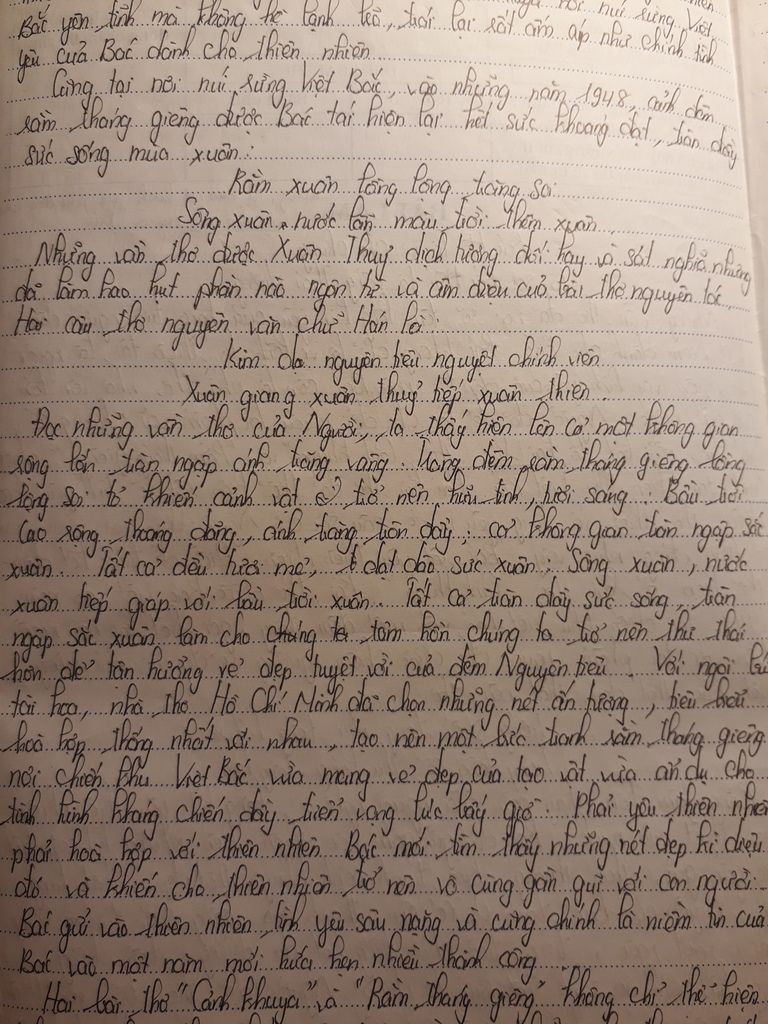 nơi núi rừng Việt
Bắc yên tĩnh mà không hề lạnh lẽo, trái lại rất ấm áp như chính tình
yêu của Bác dành cho thiên nhiên
Cũng tại nơi núi rừng Việt Bắc, vào những năm 1948, cảnh đêm
rằm tháng giêng được Bác tái hiện lại hết sức khoáng đạt, tràn đầy
sức sống mùa xuân:
Rằm xuân lồng lộng trăng soi
Sông xuân nước lẫn màu trời thêm xuân.
Những vần thơ được Xuân Thuỷ dịch tương đối hay và sát nghĩa nhưng
đã làm hao hụt phần nào ngôn từ và âm điệu của bài thơ nguyên tác.
Hai câu thơ nguyên văn chữ Hán là:
Kim dạ nguyên tiêu nguyệt chính viên
Xuân giang xuân thuỷ tiếp xuân thiên.
Đọc những vần thơ của Người, ta thấy hiện lên cả một không gian
rộng lớn tràn ngập ánh trăng vàng. Vầng đêm rằm tháng giêng lồng
lộng soi tỏ khiến cảnh vật trở nên hữu tình, tươi sáng. Bầu trời
cao rộng, thoáng đãng, ánh trăng tràn đầy, cả không gian tràn ngập sắc
xuân. Tất cả đều tươi mới, dạt dào sức xuân: Sông xuân, nước
xuân tiếp giáp với bầu trời xuân. Tất cả tràn đầy sức sống, tràn
ngập sắc xuân làm cho chúng ta tâm hồn chúng ta trở nên thư thái
hơn để tận hưởng vẻ đẹp tuyệt vời của đêm Nguyên tiêu. Với ngòi bút
tài hoa, nhà thơ Hồ Chí Minh đã chọn những nét ấn tượng, tiêu biểu
hoà hợp thống nhất với nhau, tạo nên một bức tranh rằm tháng giêng
nơi chiến khu Việt Bắc vừa mang vẻ đẹp của tạo vật vừa ẩn dụ cho
tình hình kháng chiến đầy triển vọng lúc bấy giờ. Phải yêu thiên nhiên
phải hoà hợp với thiên nhiên Bác mới tìm thấy những nét đẹp kì diệu
đó và khiến cho thiên nhiên trở nên vô cùng gần gũi với con người.
Bác gửi vào thiên nhiên tình yêu sâu nặng và cũng chính là niềm tin của
Bác vào một năm mới hứa hẹn nhiều thành công
Hai bài thơ "Cảnh khuya" và "Rằm tháng giêng" không chỉ thể hiện